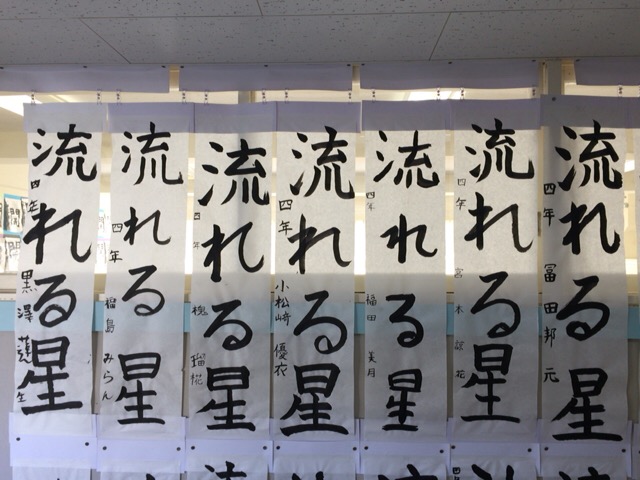 流れる星
四年 冨田邦元
流れる星
四年 宮本諒花
流れる星
四年 福田美月
流れる星
四年 小松崎優衣
流れる星
四年 槐瑠椛
流れる星
四年 福島みらん
流れる星
四年 黒澤蓮生